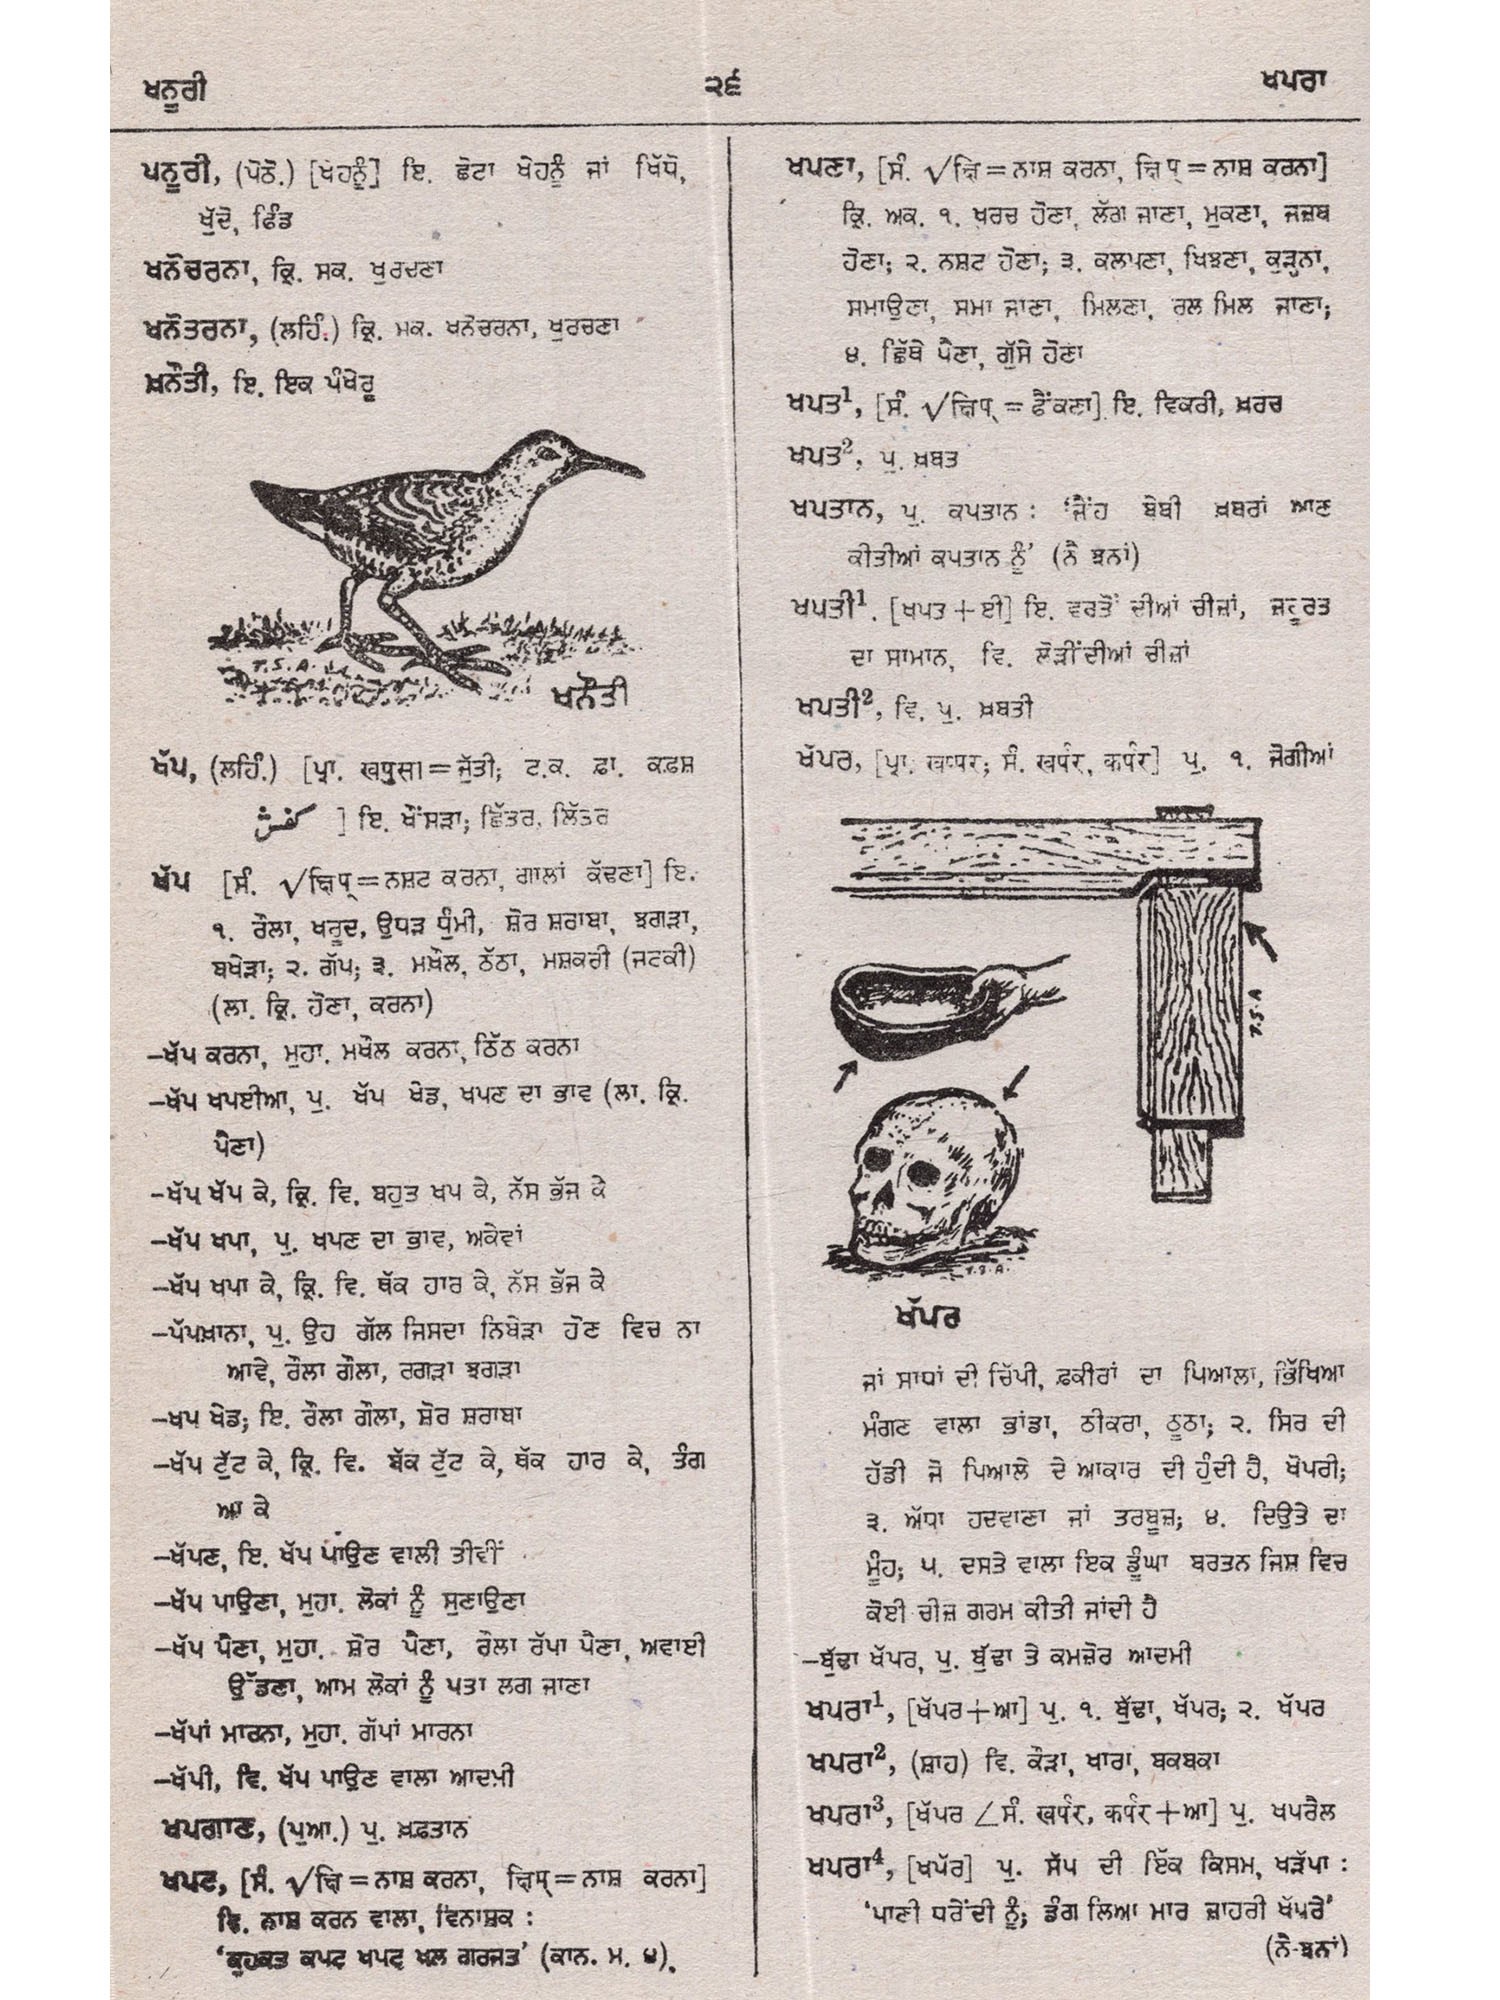 ਖਨੂਰੀ
੨੬
ਖਪਰਾ
ਖਨੂਰੀ, (ਪੋਠੋ.) [ਖੇਹਨੂੰ] ਇ. ਛੋਟਾ ਖੇਹਨੂੰ ਜਾਂ ਖਿੱਧੋ,
ਖੁੱਦੋ, ਫਿੰਡ
ਖਨੋਚਰਨਾ, ਕ੍ਰਿ. ਸਕ. ਖੁਰਚਣਾ
ਖਨੌਤਰਨਾ, (ਲਹਿੰ.) ਕ੍ਰਿ. ਸਕ. ਖਨੋਚਰਨਾ, ਖੁਰਚਣਾ
ਖ਼ਨੌਤੀ, ਇ. ਇਕ ਪੰਖੇਰੂ
T.S.A.
ਖਨੌਤੀ
ਖੱਪ, (ਲਹਿੰ.) [ਪ੍ਰਾ. खपुसा=ਜੁੱਤੀ; ਟ.ਕ. ਫ਼ਾ. ਕਫ਼ਸ਼
کفش ] ਇ. ਖੌਂਸੜਾ; ਛਿੱਤਰ, ਲਿੱਤਰ
ਖੱਪ [ਸੰ. √क्षिप्=ਨਸ਼ਟ ਕਰਨਾ, ਗਾਲਾਂ ਕੱਢਣਾ] ਇ.
੧. ਰੌਲਾ, ਖਰੂਦ, ਉਧੜ ਧੁੰਮੀ, ਸ਼ੋਰ ਸ਼ਰਾਬਾ, ਝਗੜਾ,
ਬਖੇੜਾ; ੨. ਗੱਪ; ੩. ਮਖ਼ੌਲ, ਠੱਠਾ, ਮਸ਼ਕਰੀ (ਜਟਕੀ)
(ਲਾ. ਕ੍ਰਿ. ਹੋਣਾ, ਕਰਨਾ)
–ਖੱਪ ਕਰਨਾ, ਮੁਹਾ. ਮਖੌਲ ਕਰਨਾ, ਠਿੱਠ ਕਰਨਾ
–ਖੱਪ ਖਪਈਆ, ਪੁ. ਖੱਪ ਖੇਡ, ਖਪਣ ਦਾ ਭਾਵ (ਲਾ. ਕ੍ਰਿ.
ਪੈਣਾ)
–ਖੱਪ ਖੱਪ ਕੇ, ਕ੍ਰਿ. ਵਿ. ਬਹੁਤ ਖਪ ਕੇ, ਨੱਸ ਭੱਜ ਕੇ
–ਖੱਪ ਖਪਾ, ਪੁ. ਖਪਣ ਦਾ ਭਾਵ, ਅਕੇਵਾਂ
–ਖੱਪ ਖਪਾ ਕੇ, ਕ੍ਰਿ. ਵਿ. ਥੱਕ ਹਾਰ ਕੇ, ਨੱਸ ਭੱਜ ਕੇ
–ਖੱਪਖ਼ਾਨਾ, ਪੁ. ਉਹ ਗੱਲ ਜਿਸਦਾ ਨਿਬੇੜਾ ਹੋਣ ਵਿਚ ਨਾ
ਆਵੇ, ਰੌਲਾ ਗੌਲਾ, ਰਗੜਾ ਝਗੜਾ
–ਖਪ ਖੇਡ; ਇ. ਰੌਲਾ ਗੌਲਾ, ਸ਼ੋਰ ਸ਼ਰਾਬਾ
–ਖੱਪ ਟੁੱਟ ਕੇ, ਕ੍ਰਿ. ਵਿ. ਬੱਕ ਟੁੱਟ ਕੇ, ਥੱਕ ਹਾਰ ਕੇ, ਤੰਗ
ਆ ਕੇ
–ਖੱਪਣ, ਇ. ਖੱਪ ਪਾਉਣ ਵਾਲੀ ਤੀਵੀਂ
–ਖੱਪ ਪਾਉਣਾ, ਮੁਹਾ. ਲੋਕਾਂ ਨੂੰ ਸੁਣਾਉਣਾ
–ਖੱਪ ਪੈਣਾ, ਮੁਹਾ. ਸ਼ੋਰ ਪੈਣਾ, ਰੌਲਾ ਰੱਪਾ ਪੈਣਾ, ਅਵਾਈ
ਉੱਡਣਾ, ਆਮ ਲੋਕਾਂ ਨੂੰ ਪਤਾ ਲਗ ਜਾਣਾ
–ਖੱਪਾਂ ਮਾਰਨਾ, ਮੁਹਾ. ਗੱਪਾਂ ਮਾਰਨਾ
–ਖੱਪੀ, ਵਿ. ਖੱਪ ਪਾਉਣ ਵਾਲਾ ਆਦਮੀ
ਖਪਗਾਣ, (ਪੁਆ.) ਪੁ. ਖ਼ਫ਼ਤਾਨ
ਖਪਟ, [ਸੰ. √क्षि=ਨਾਸ਼ ਕਰਨਾ, क्षिप्=ਨਾਸ਼ ਕਰਨਾ]
ਵਿ. ਨਾਸ਼ ਕਰਨ ਵਾਲਾ, ਵਿਨਾਸ਼ਕ :
‘ਕੁਹਕਤ ਕਪਟ ਖਪਟ ਖਲ ਗਰਜਤ’ (ਕਾਨ. ਮ. ੪).
ਖਪਣਾ, [ਸੰ. √क्षि=ਨਾਸ਼ ਕਰਨਾ, क्षिप्=ਨਾਸ਼ ਕਰਨਾ]
ਕ੍ਰਿ. ਅਕ. ੧. ਖ਼ਰਚ ਹੋਣਾ, ਲੱਗ ਜਾਣਾ, ਮੁਕਣਾ, ਜਜ਼ਬ
ਹੋਣਾ; ੨. ਨਸ਼ਟ ਹੋਣਾ; ੩. ਕਲਪਣਾ, ਖਿਝਣਾ, ਕੁੜ੍ਹਨਾ,
ਸਮਾਉਣਾ, ਸਮਾ ਜਾਣਾ, ਮਿਲਣਾ, ਰਲ ਮਿਲ ਜਾਣਾ;
੪. ਛਿੱਥੇ ਪੈਣਾ, ਗੁੱਸੇ ਹੋਣਾ
ਖਪਤ¹, [ਸੰ. √क्षिप्=ਫੈਂਕਣਾ] ਇ. ਵਿਕਰੀ, ਖ਼ਰਚ
ਖਪਤ², ਪੁ. ਖ਼ਬਤ
ਖਪਤਾਨ, ਪੁ. ਕਪਤਾਨ : ‘ਜੈਂਹ ਬੇਬੀ ਖ਼ਬਰਾਂ ਆਣ
ਕੀਤੀਆਂ ਕਪਤਾਨ ਨੂੰ’ (ਨੈ ਝਨਾਂ)
ਖਪਤੀ¹. [ਖਪਤ+ਈ] ਇ. ਵਰਤੋਂ ਦੀਆਂ ਚੀਜ਼ਾਂ, ਜ਼ਰੂਰਤ
ਦਾ ਸਾਮਾਨ, ਵਿ. ਲੋੜੀਂਦੀਆਂ ਚੀਜ਼ਾਂ
ਖਪਤੀ², ਵਿ. ਪੁ. ਖ਼ਬਤੀ
ਖੱਪਰ, [ਪ੍ਰਾ. खप्पर; ਸੰ. खर्पर, कर्पर] ਪੁ. ੧. ਜੋਗੀਆਂ
T.S.A
T.S.A.
ਖੱਪਰ
ਜਾਂ ਸਾਧਾਂ ਦੀ ਚਿੱਪੀ, ਫ਼ਕੀਰਾਂ ਦਾ ਪਿਆਲਾ, ਭਿੱਖਿਆ
ਮੰਗਣ ਵਾਲਾ ਭਾਂਡਾ, ਠੀਕਰਾ, ਠੂਠਾ; ੨. ਸਿਰ ਦੀ
ਹੱਡੀ ਜੋ ਪਿਆਲੇ ਦੇ ਆਕਾਰ ਦੀ ਹੁੰਦੀ ਹੈ, ਖੋਪਰੀ;
੩. ਅੱਧਾ ਹਦਵਾਣਾ ਜਾਂ ਤਰਬੂਜ਼; ੪. ਦਿਉਤੇ ਦਾ
ਮੂੰਹ; ੫. ਦਸਤੇ ਵਾਲਾ ਇਕ ਡੂੰਘਾ ਬਰਤਨ ਜਿਸ ਵਿਚ
ਕੋਈ ਚੀਜ਼ ਗਰਮ ਕੀਤੀ ਜਾਂਦੀ ਹੈ
–ਬੁੱਢਾ ਖੱਪਰ, ਪੁ. ਬੁੱਢਾ ਤੇ ਕਮਜ਼ੋਰ ਆਦਮੀ
ਖਪਰਾ¹, [ਖੱਪਰ+ਆ] ਪੁ. ੧. ਬੁੱਢਾ, ਖੱਪਰ; ੨. ਖੱਪਰ
ਖਪਰਾ², (ਸ਼ਾਹ) ਵਿ. ਕੌੜਾ, ਖਾਰਾ, ਬਕਬਕਾ
ਖਪਰਾ³, [ਖੱਪਰ ∠ਸੰ. खर्पर, कर्पर+ਆ] ਪੁ. ਖਪਰੈਲ
ਖਪਰਾ⁴, [ਖਪੱਰ] ਪੁ. ਸੱਪ ਦੀ ਇੱਕ ਕਿਸਮ, ਖੜੱਪਾ :
‘ਪਾਣੀ ਧਰੇਂਦੀ ਨੂੰ; ਡੰਗ ਲਿਆ ਮਾਰ ਜ਼ਾਹਰੀ ਖੱਪਰੇ’
(ਨੈ-ਝਨਾਂ)